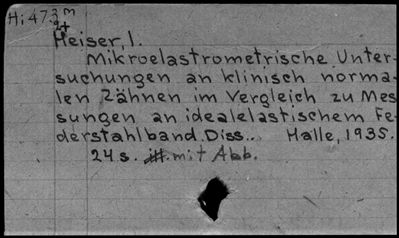 Hi 473 m
2t
Heiser, I.
Mikroelastrometrische Unter-
suchungen an klinisch norma-
len Zähnen im Vergleich zu Mes
sungen an idealelastischem Fe-
derstahlband. Diss.. Halle, 1935.
24 s. mit Abb.